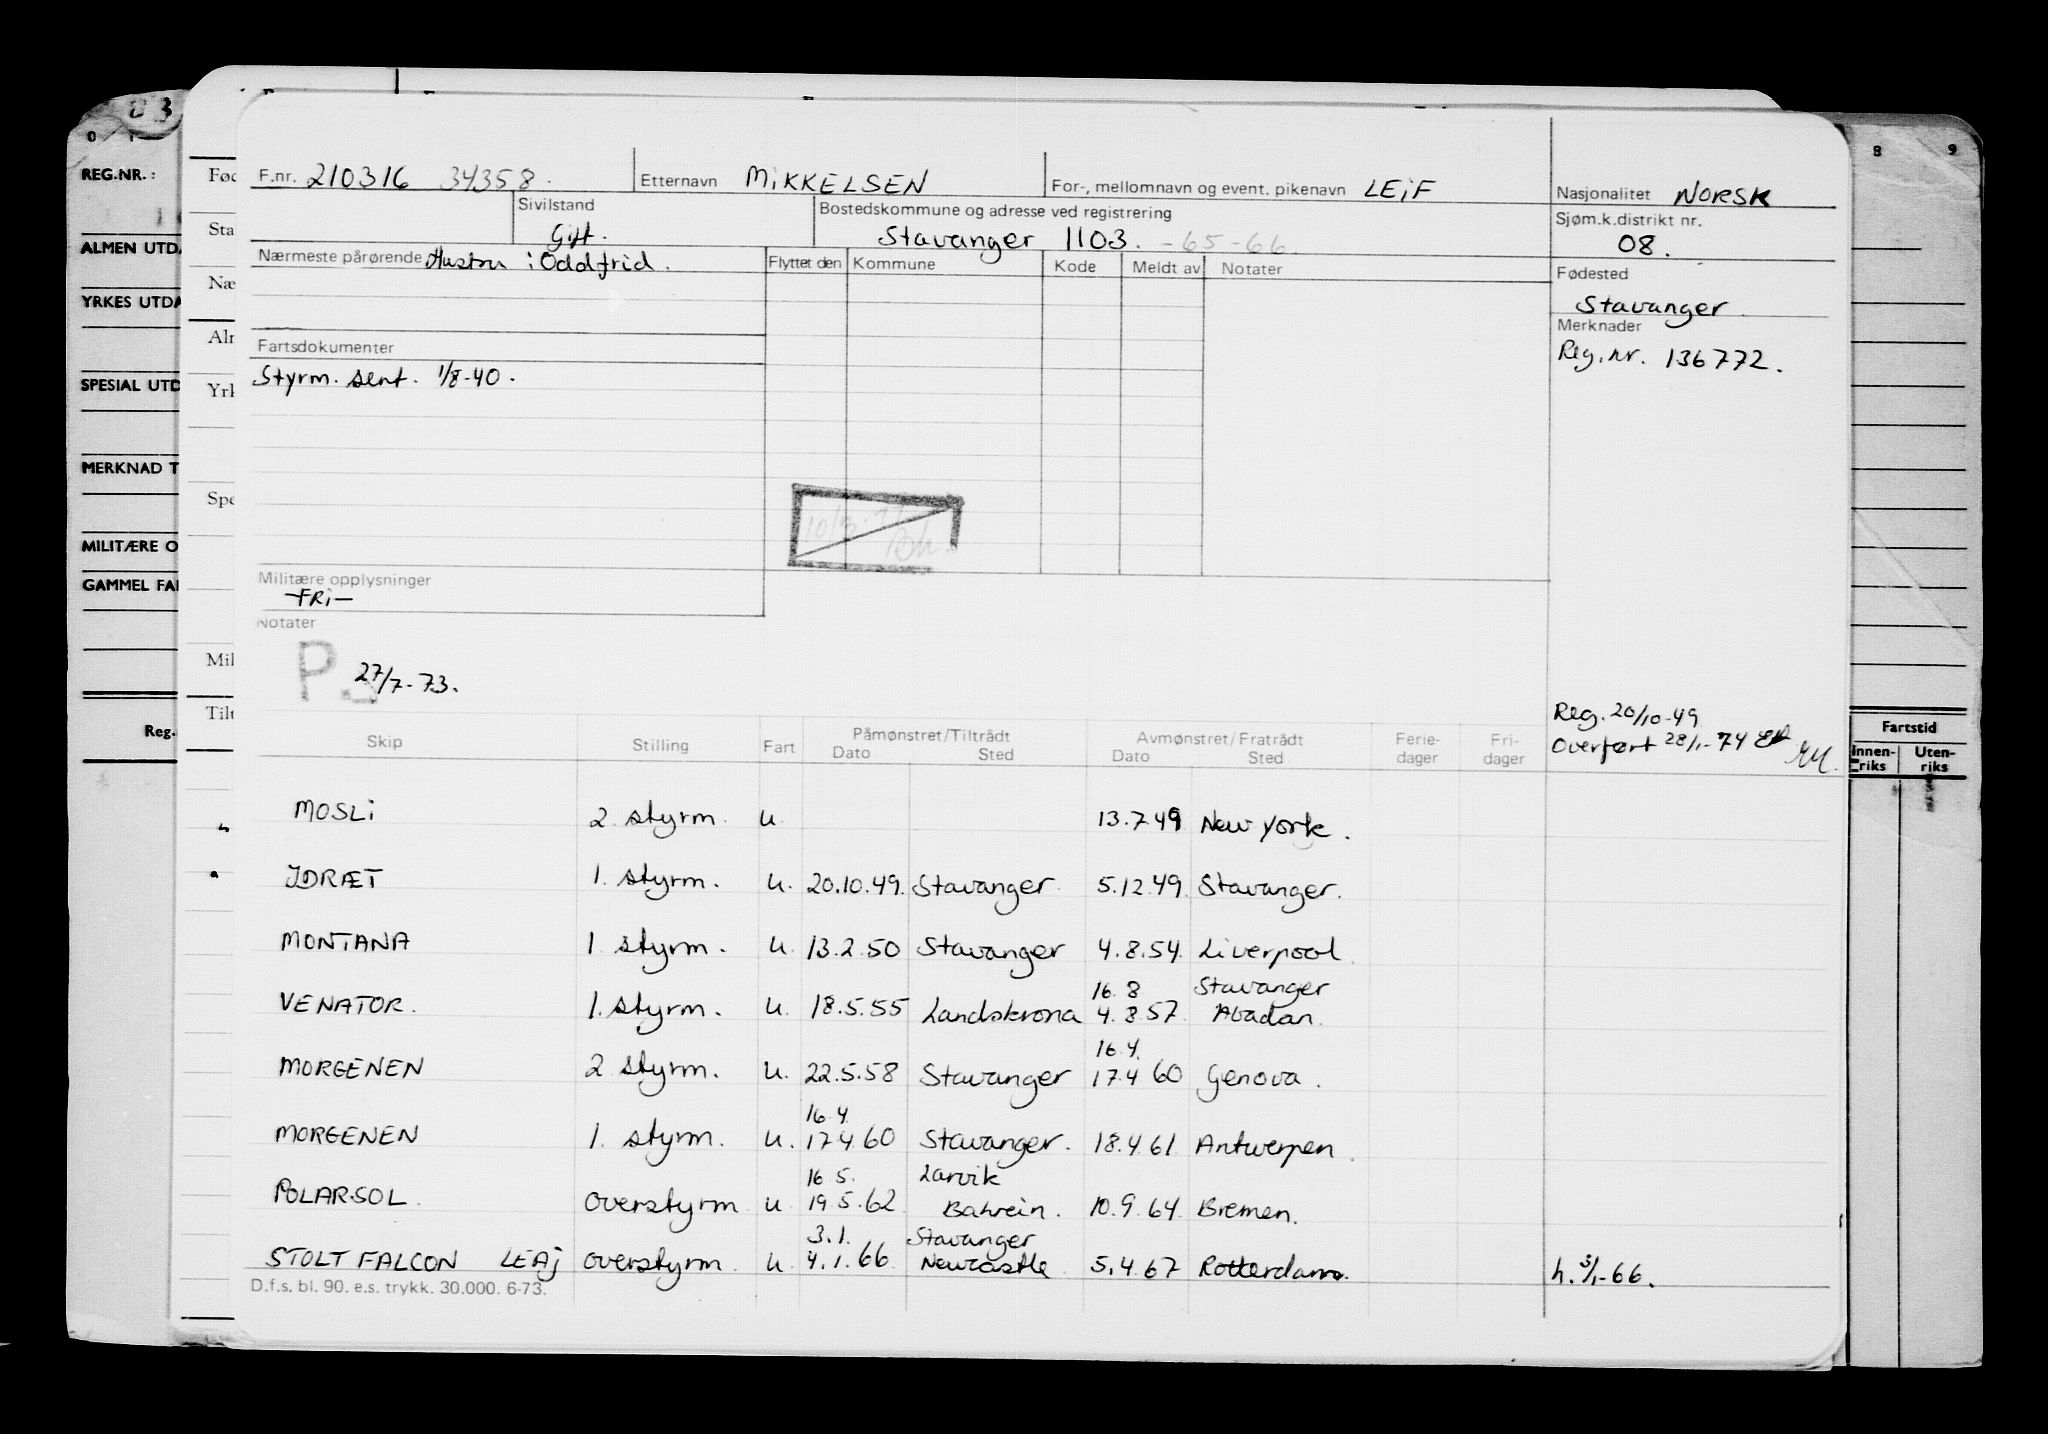 F.nr. 210316 34358. Etternavn MIKKELSEN For-, mellomnavn og event. pikenavn LEIF Nasjonalitet NORSK
Sivilstand Gift. Bostedskommune og adresse ved registrering Stavanger 1103. -65-66 Sjøm.k.distrikt nr. 08.
Nærmeste pårørende Hustru : Oddfrid. Flyttet den Kommune Kode Meldt av Notater
Fødested
Stavanger
Merknader
Reg. nr. 136772.
Fartsdokumenter
Styrm. sert. 1/8-40.
Militære opplysninger
-FRI-
Notater
27/7-73.
Reg. 20/10-49
Overført 28/1-74
Skip Stilling Fart Påmønstret/Tiltrådt Dato Sted Avmønstret/Fratrådt Dato Sted Ferie-dager Fri-dager
MOSLI 2. styrm. u 13.7.49 New York.
IDRÆT 1. styrm. u. 20.10.49. Stavanger 5.12.49. Stavanger.
MONTANA 1. styrm. u. 13.2.50 Stavanger 4.8.54. Liverpool
16.8 Stavanger
VENATOR. 1. styrm. u. 18.5.55 Landskrona 4.8.57. Abadan.
16.4.
MORGENEN 2 styrm. u. 22.5.58 Stavanger 17.4 60 Genova.
16.4.
MORGENEN 1. styrm. u. 17.4 60 Stavanger. 18.4.61 Antwerpen.
16.5. Larvik
POLARSOL. overstyrm u 19.5.62 Bahrein. 10.9.64. Bremen.
3.1. Stavanger
STOLT FALCON LEAJ overstyrm. u. 4.1.66. Newcastle 5.4.67 Rotterdam. h. 3/1-66.
D.f.s. bl. 90. e.s. trykk. 30.000. 6-73.
REG.NR.:
ALMEN UTDA
YRKES UTDA
SPESIAL UTD
MERKNAD T
MILITÆRE O
GAMMEL FA
Reg.
Fød
Sta
Næ
Alr
Yrk
Spe
Mil
Tilt
8 9
Fartstid
Innen-riks Uten-riks